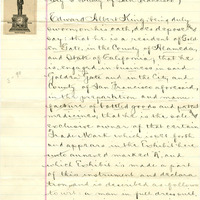 City & County of San Francisco }
Edward Albert King, being duly
sworn on his oath, does depose and
say: That he is a resident of Gold-
en Gate, in the County of Alameda,
and State of California, that he
is engaged in business in said
Golden Gate and in the City and
County of San Francisco aforesaid,
in the preparation and manu-
facture of bottled goods and pota
, that he is the sole
exclusive owner of that certain
Trade Mark which is set forth
and appears in the Exhibit here-
unto annexed marked A, and
which Exhibit is made a part
of this instrument and declara-
tion, and is described as follows
to wit: a man in full dress suit,